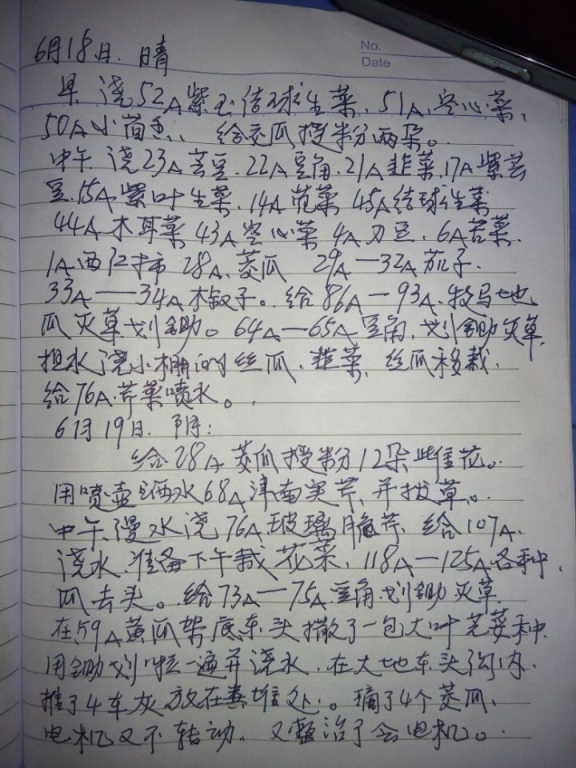 No.
Date
6月18日. 晴
早 浇52A紫玉结球生菜, 51A, 空心菜,
50A小茴香、 给茭瓜授粉两朵。
中午 浇23A芸豆. 22A豆角. 21A韭菜. 17A紫芸
豆. 15A紫叶生菜. 14A苋菜 45A结球生菜
44A木耳菜 43A空心菜 4A刀豆. 6A苦菜.
1A西红柿 28A. 茭瓜 29A—32A茄子.
33A——34A木椒子。给86A—93A.
瓜灭草划锄。64A—65A豆角, 划锄灭草,
担水浇小棚的丝瓜. 韭菜, 丝瓜移栽.
给76A.芹菜喷水。
6月19日. 阴:
给28A茭瓜授粉12朵雌花。
用喷壶洒水68A津南实芹, 并拔草。
中午 漫水浇76A.玻璃脆芹, 给107A.
浇水. 准备下午栽花菜, 118A—125A各种.
瓜去头。给73A—75A豆角划锄灭草
在59A黄瓜架底东头撒了一包大叶芫荽种.
用锄划 一遍并浇水. 在大地东头沟内.
推了4车灰放在粪堆处。摘了4个茭瓜.
电机又不转动. 又整治了会电机。